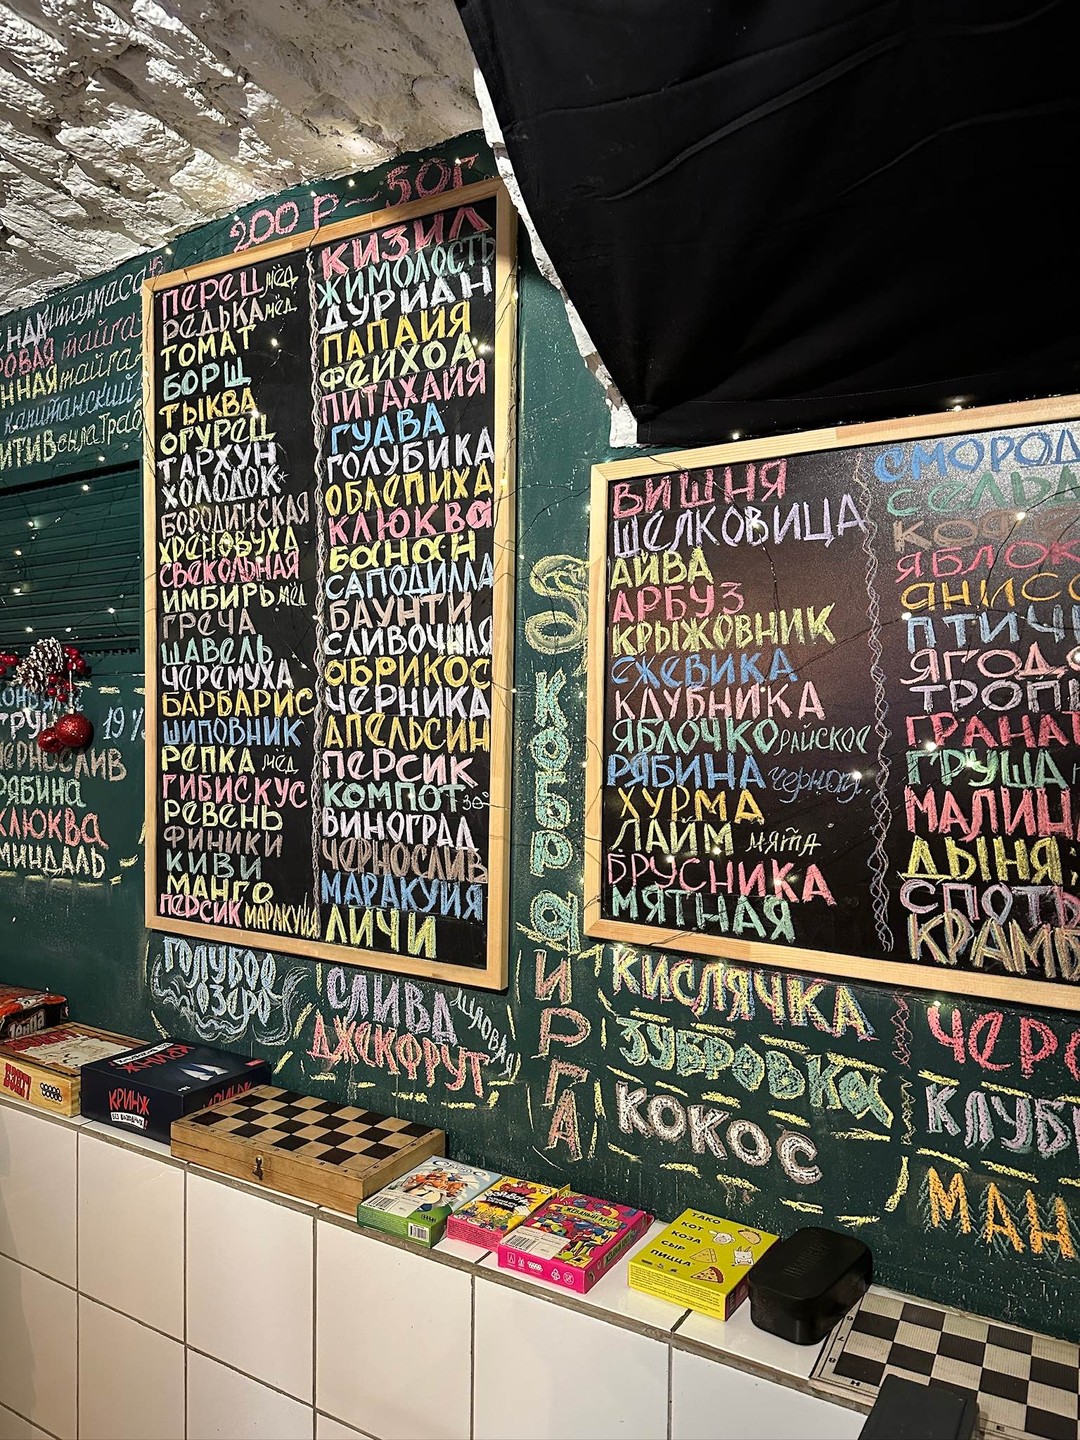 200 Р – 50Г
тайга
тайга
капитанский
19%
ЧЕРНОСЛИВ
РЯБИНА
КЛЮКВА
МИНДАЛЬ
ПЕРЕЦ мёд
РЕДЬКА мёд
ТОМАТ
БОРЩ
ТЫКВА
ОГУРЕЦ
ТАРХУН
ХОЛОДОК*
БОРОДИНСКАЯ
ХРЕНОВУХА
СВЕКОЛЬНАЯ
ИМБИРЬ мёд
ГРЕЧА
ЩАВЕЛЬ
ЧЕРЕМУХА
БАРБАРИС
ШИПОВНИК
РЕПКА мёд
ГИБИСКУС
РЕВЕНЬ
ФИНИКИ
КИВИ
МАНГО
ПЕРСИК МАРАКУЙЯ
КИЗИЛ
ЖИМОЛОСТЬ
ДУРИАН
ПАПАЙЯ
ФЕЙХОА
ПИТАХАЙЯ
ГУАВА
ГОЛУБИКА
ОБЛЕПИХА
КЛЮКВА
БАНАН
САПОДИЛЛА
БАУНТИ
СЛИВОЧНАЯ
АБРИКОС
ЧЕРНИКА
АПЕЛЬСИН
ПЕРСИК
КОМПОТ 30°
ВИНОГРАД
ЧЕРНОСЛИВ
МАРАКУЙЯ
ЛИЧИ
ГОЛУБОЕ
ОЗЕРО
СЛИВА
ДЖЕКФРУТ
КОБРА
ИРГА
ВИШНЯ
ШЕЛКОВИЦА
АЙВА
АРБУЗ
КРЫЖОВНИК
ЕЖЕВИКА
КЛУБНИКА
ЯБЛОЧКО РАЙСКОЕ
РЯБИНА черноп.
ХУРМА
ЛАЙМ мята
БРУСНИКА
МЯТНАЯ
СМОРОД
СЕЛЬД
КОФЕ
ЯБЛОК
АНИСО
ПТИЧЬ
ЯГОД
ТРОПИ
ГРАНАТ
ГРУША
МАЛИН
ДЫНЯ
СПОТЫ
КРАМБ
КИСЛЯЧКА
ЗУБРОВКА
КОКОС
ЧЕР
КЛУБ
МАН
КРИНЖ
ТАКО
КОТ
КОЗА
СЫР
ПИЦЦА